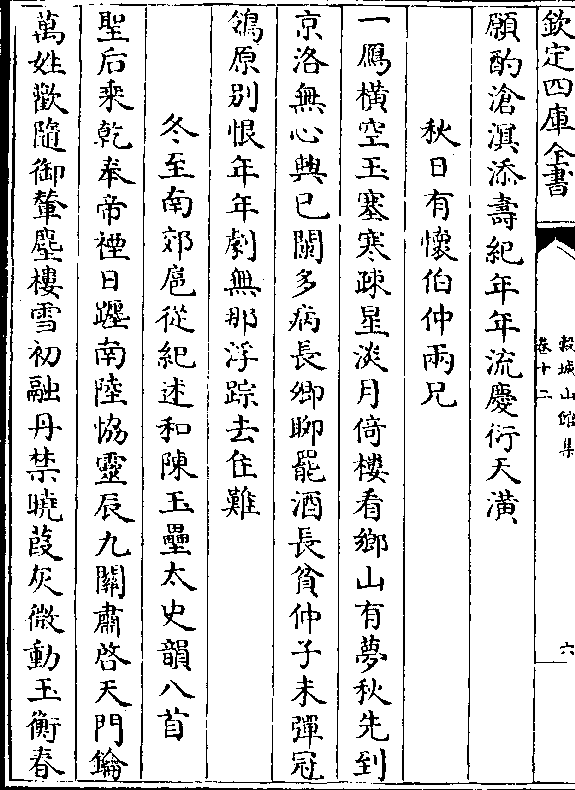 欽定四庫全書
穀城山館集
卷十二
六
願酌滄溟添壽紀年年流慶衍天潢
秋日有懷伯仲兩兄
一鴈橫空玉塞寒疎星淡月倚樓看鄉山有夢秋先到
京洛無心興已闌多病長卿聊罷酒長貧仲子未彈冠
鴒原別恨年年劇無那浮踪去住難
冬至南郊扈從紀述和陳玉壘太史韻八首
聖后乘乾奉帝禋日躔南陸恊靈辰九關肅啓天門鑰
萬姓歡隨御輦塵樓雪初融丹禁曉葭灰微動玉衡春